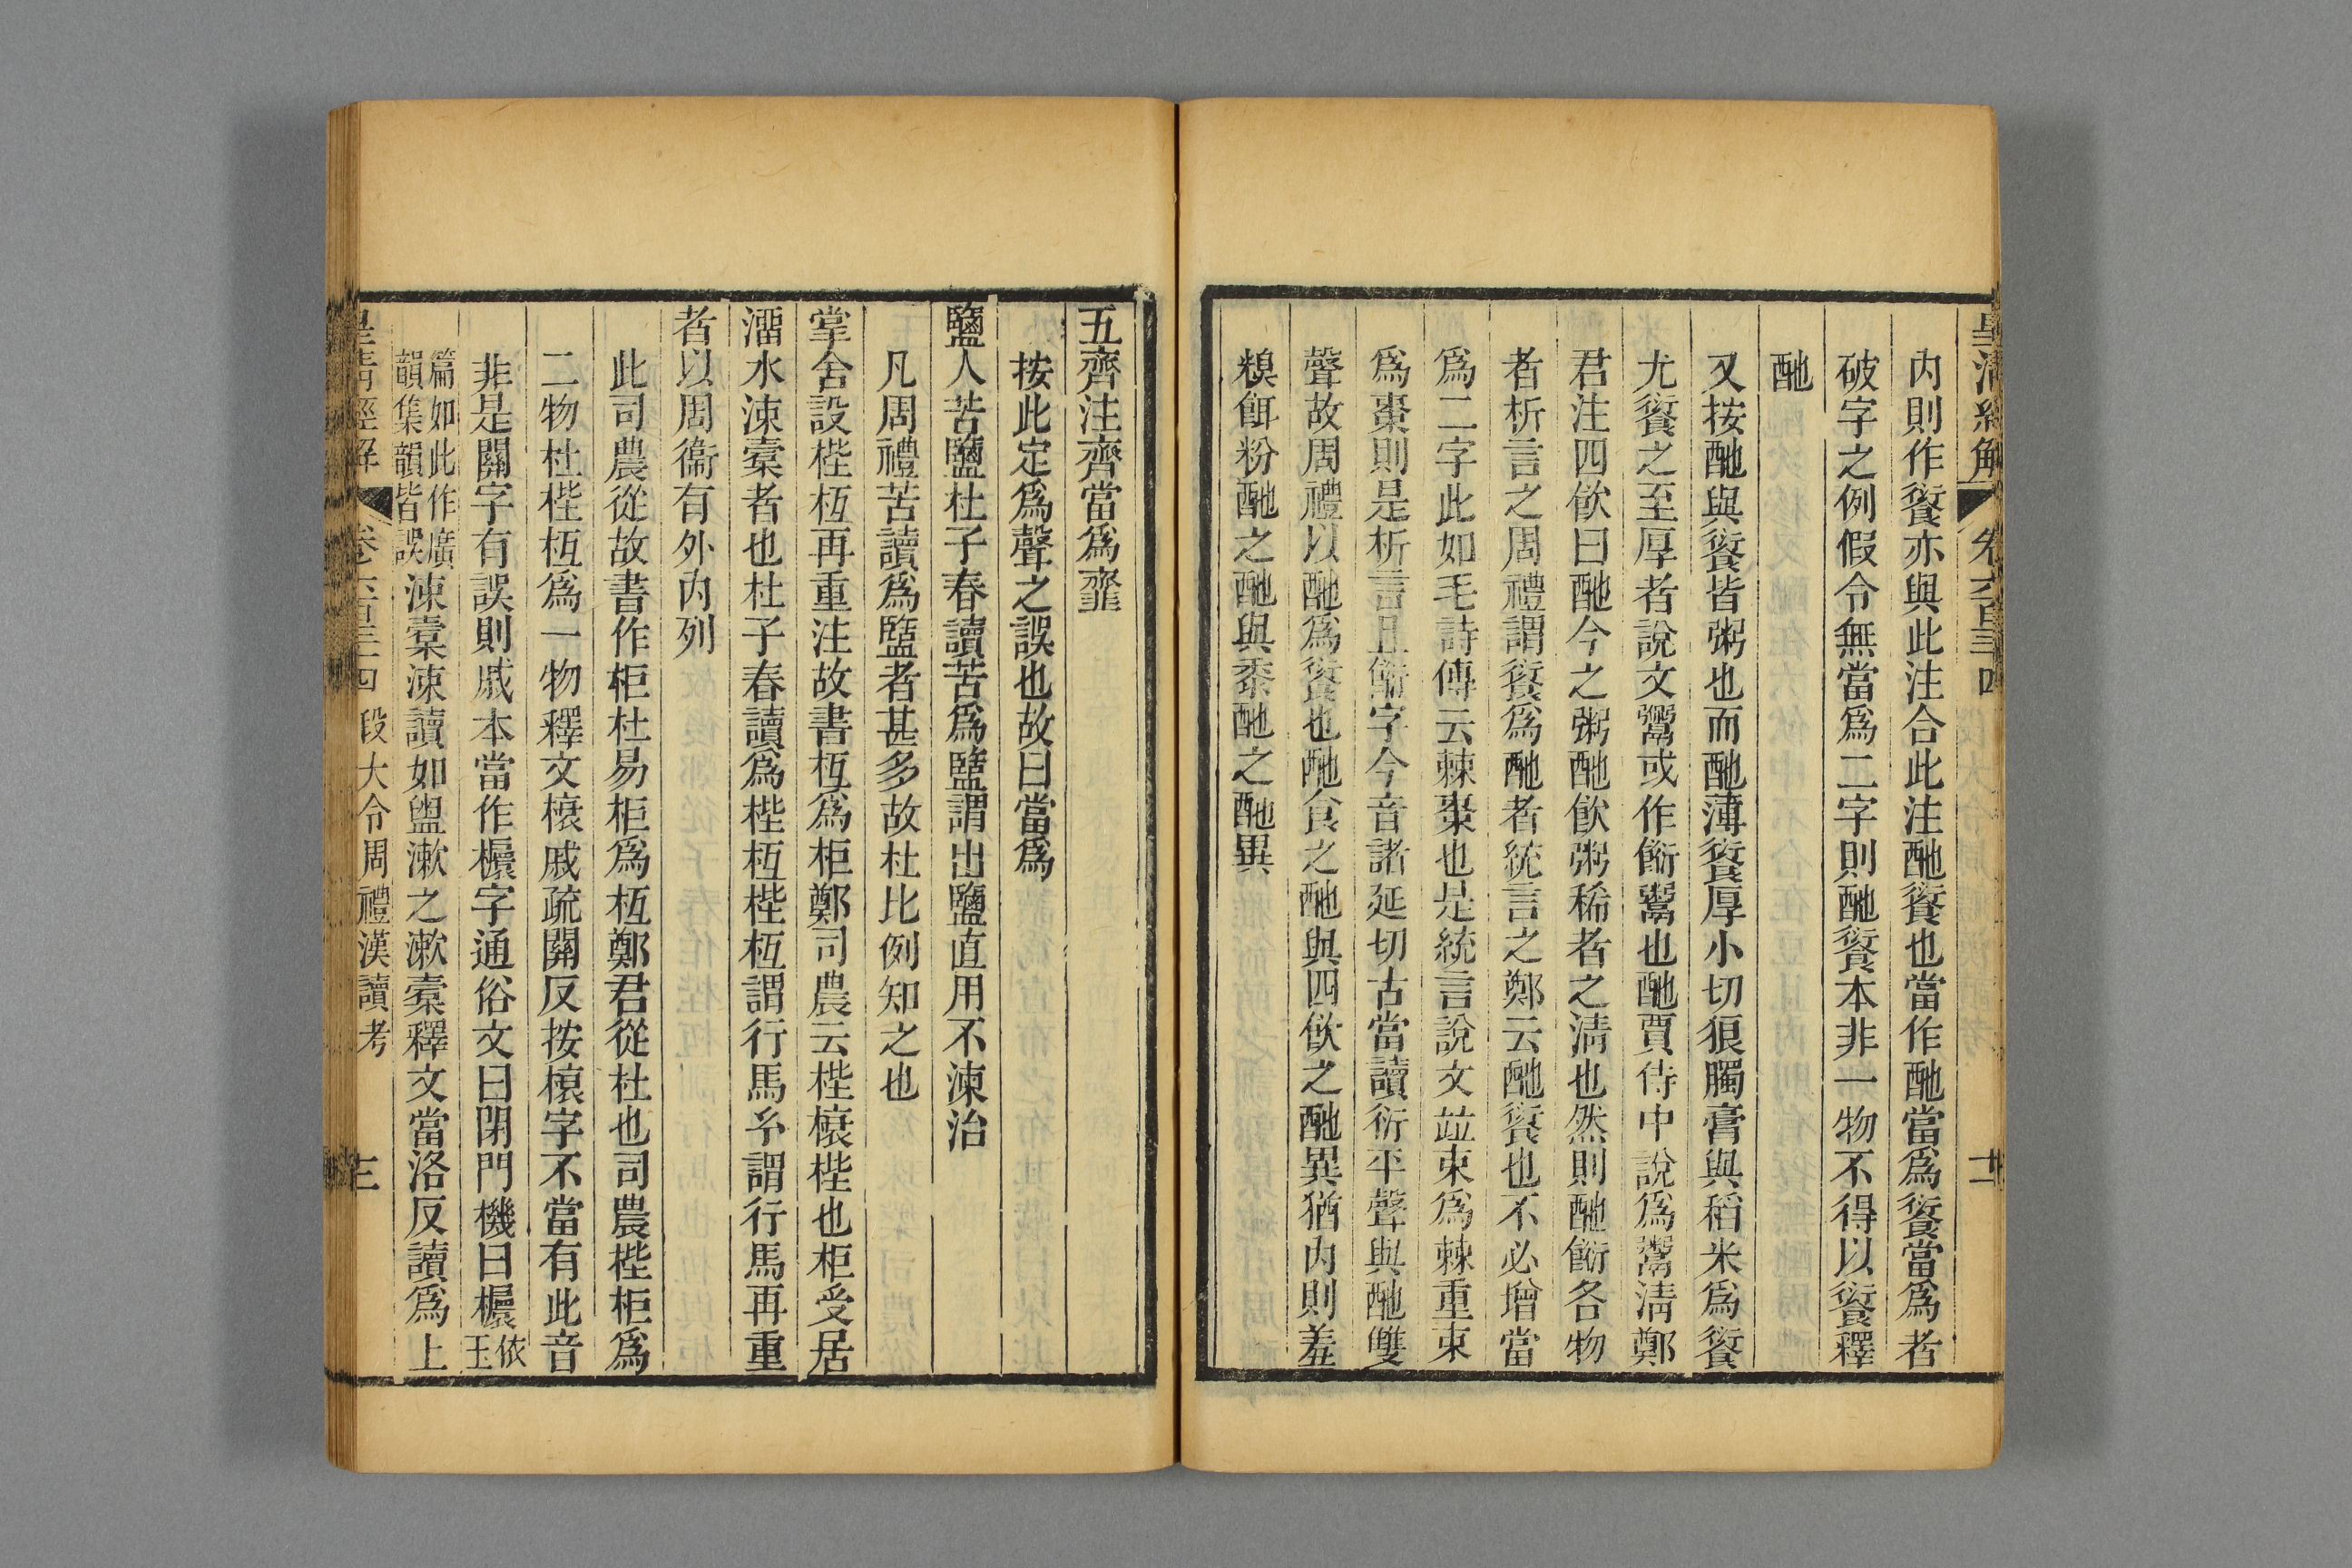 皇清經解 卷六百三十四 十二
內則作餰亦與此注合此注酏餰也當作酏當爲餰當爲者
破字之例假令無當爲二字則酏餰本非一物不得以餰釋
酏
又按酏與餰皆粥也而酏薄餰厚小切狼臅膏與稻米爲餰
尤餰之至厚者說文鬻或作餰鬻也酏賈侍中說爲鬻淸鄭
君注四飮曰酏今之粥酏飮粥稀者之淸也然則酏餰各物
者析言之周禮謂餰爲酏者統言之鄭云酏餰也不必增當
爲二字此如毛詩傳云棘棗也是統言說文竝朿爲棘重朿
爲棗則是析言且餰字今音諸延切古當讀衍平聲與酏雙
聲故周禮以酏爲餰也酏食之酏與四飮之酏異猶內則羞
糗餌粉酏之酏與黍酏之酏異
五齊注齊當爲韲
按此定爲聲之誤也故曰當爲
鹽人苦鹽杜子春讀苦爲盬謂出鹽直用不涷治
凡周禮苦讀爲盬者甚多故杜比例知之也
掌舍設梐枑再重注故書枑爲柜鄭司農云梐榱梐也柜受居
溜水涑橐者也杜子春讀爲梐枑梐枑謂行馬予謂行馬再重
者以周衞有外內列
此司農從故書作柜杜易柜爲枑鄭君從杜也司農梐柜爲
二物杜梐枑爲一物釋文榱戚疏關反按榱字不當有此音
非是關字有誤則戚本當作櫦字通俗文曰閉門機曰櫦依玉
篇如此作廣韻集韻皆誤涑橐涑讀如盥漱之漱橐釋文當洛反讀爲上
皇清經解 卷六百三十四 段大令周禮漢讀考 三